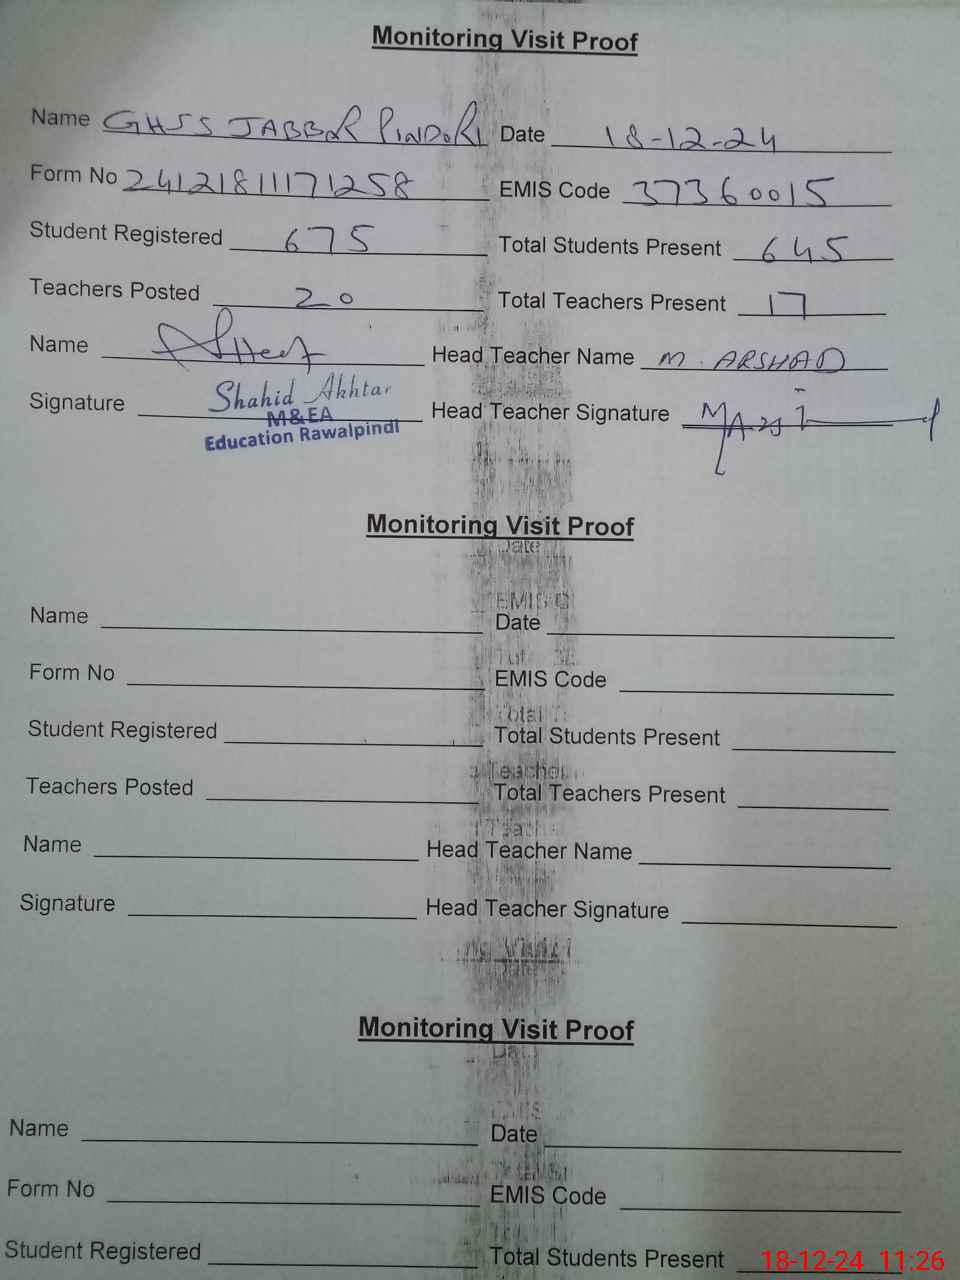 Monitoring Visit Proof
Name GHSS JABBOR PINDORI Date 18-12-24
Form No 24121811171258 EMIS Code 37360015
Student Registered 675 Total Students Present 645
Teachers Posted 20 Total Teachers Present 17
Name Head Teacher Name M. ARSHAD
Signature Shahid Akhtar Head Teacher Signature
M&EA
Education Rawalpindi
Monitoring Visit Proof
Date
EMIS C
Name Date
Form No EMIS Code
Total
Student Registered Total Students Present
Teacher
Teachers Posted Total Teachers Present
Name Head Teacher Name
Signature Head Teacher Signature
Monitoring Visit Proof
Name Date
Form No EMIS Code
Student Registered Total Students Present
18-12-24 11:26